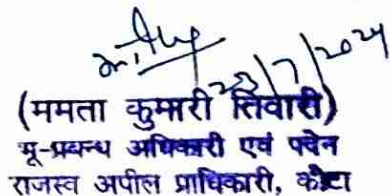 23/7/2024
(ममता कुमारी तिवारी)
भू-प्रबन्ध अधिकारी एवं पदेन
राजस्व अपील प्राधिकारी, कोटा